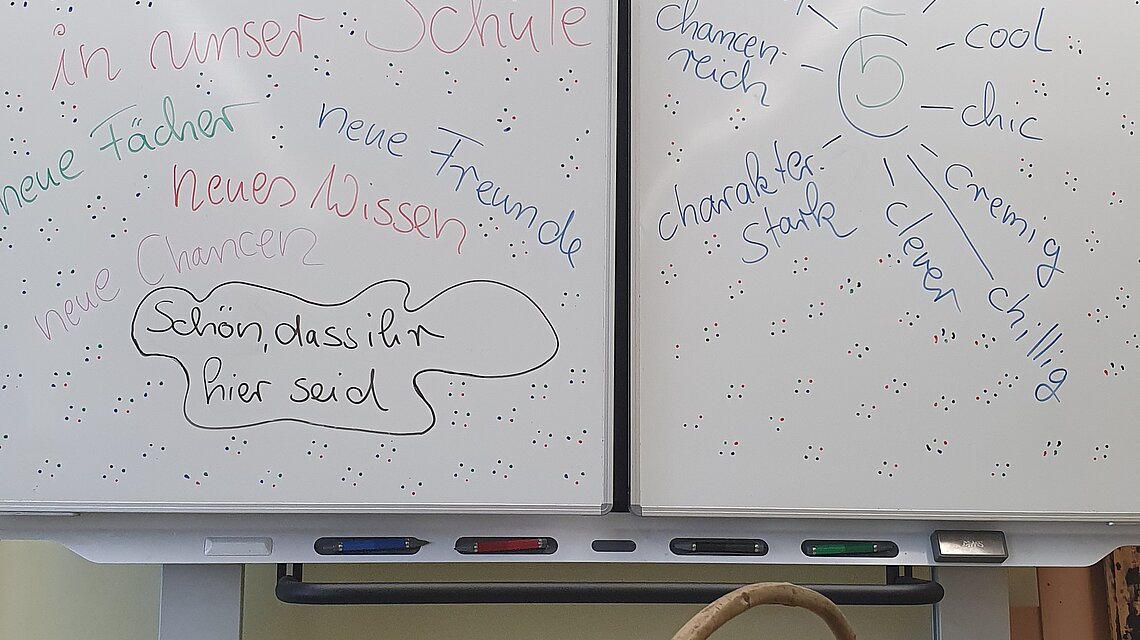 in unser Schule
neue Fächer
neue Freunde
neues Wissen
neue Chancen
Schön, dass ihr
hier seid
chancen-
reich
5
C
cool
chic
charakter-
stark
cremig
clever
chillig